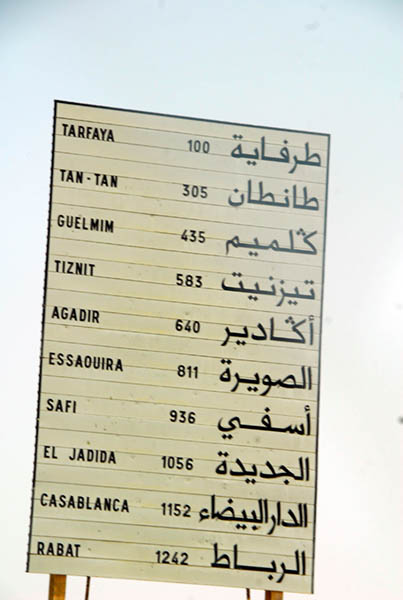 TARFAYA 100 طرفاية
TAN-TAN 305 طانطان
GUELMIM 435 ݣلميم
TIZNIT 583 تيزنيت
AGADIR 640 أݣادير
ESSAOUIRA 811 الصويرة
SAFI 936 أسفي
EL JADIDA 1056 الجديدة
CASABLANCA 1152 الدارالبيضاء
RABAT 1242 الرباط